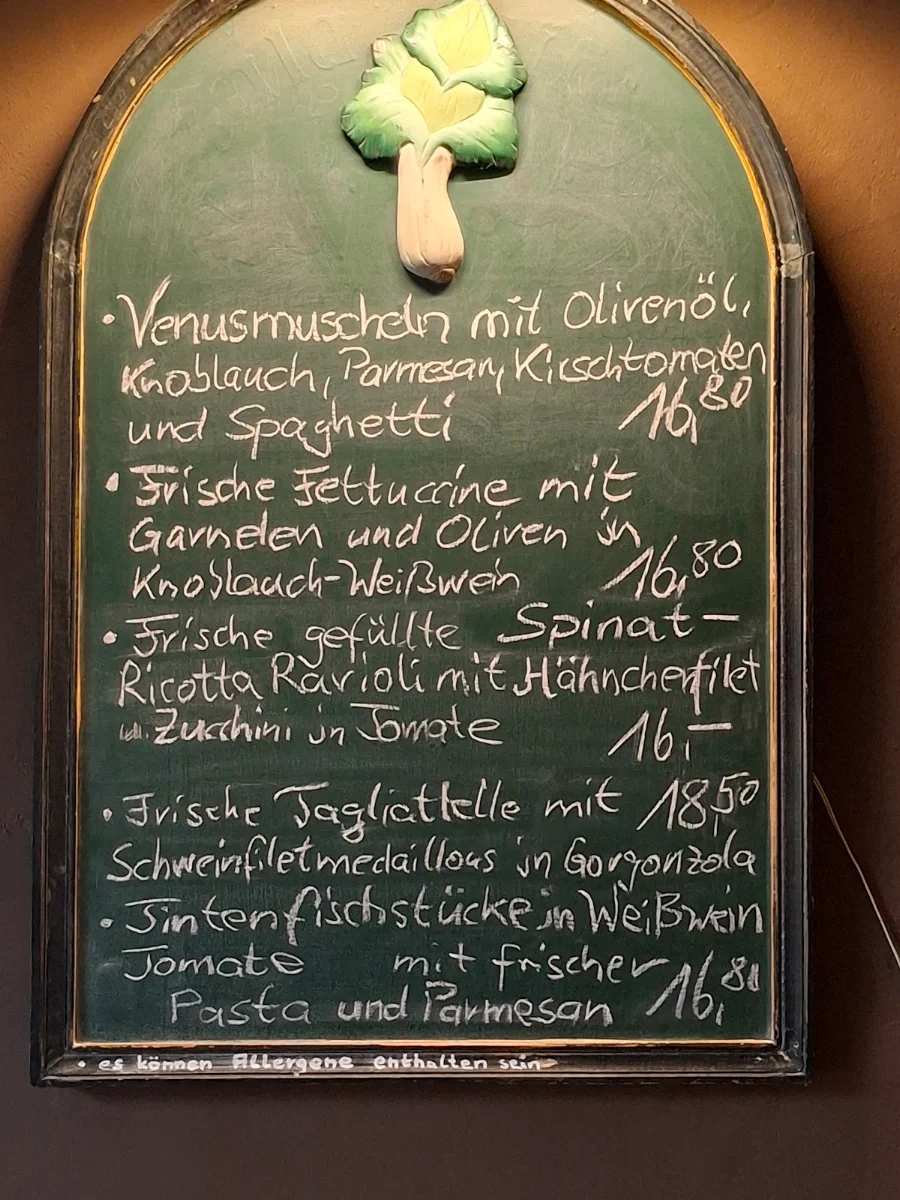 • Venusmuscheln mit Olivenöl,
Knoblauch, Parmesan, Kirschtomaten
und Spaghetti 16,80
• Frische Fettuccine mit
Garnelen und Oliven in
Knoblauch-Weißwein 16,80
• Frische gefüllte Spinat-
Ricotta Ravioli mit Hähnchenfilet
u. Zucchini in Tomate 16,-
• Frische Tagliattelle mit 18,50
Schweinfiletmedaillous in Gorgonzola
• Tintenfischstücke in Weißwein
Tomate mit frischer 16,80
Pasta und Parmesan
• es können Allergene enthalten sein